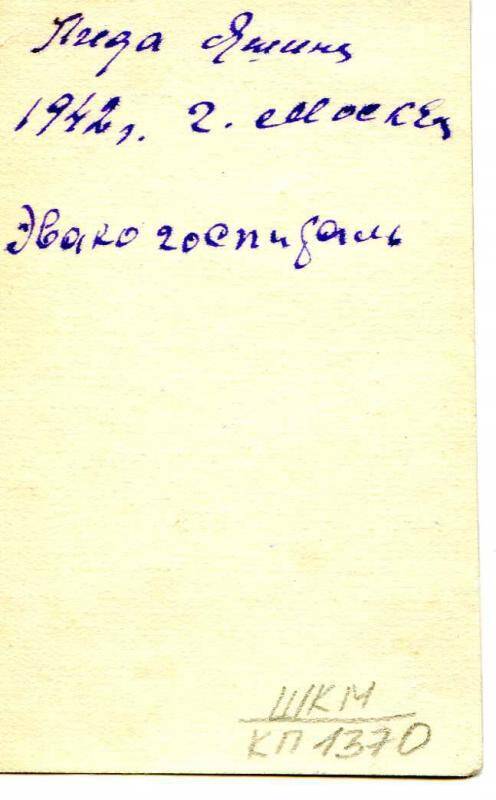 Лида Яшина
1942 г. г. Москва
Эвакогоспиталь
ШКМ
КП 1370